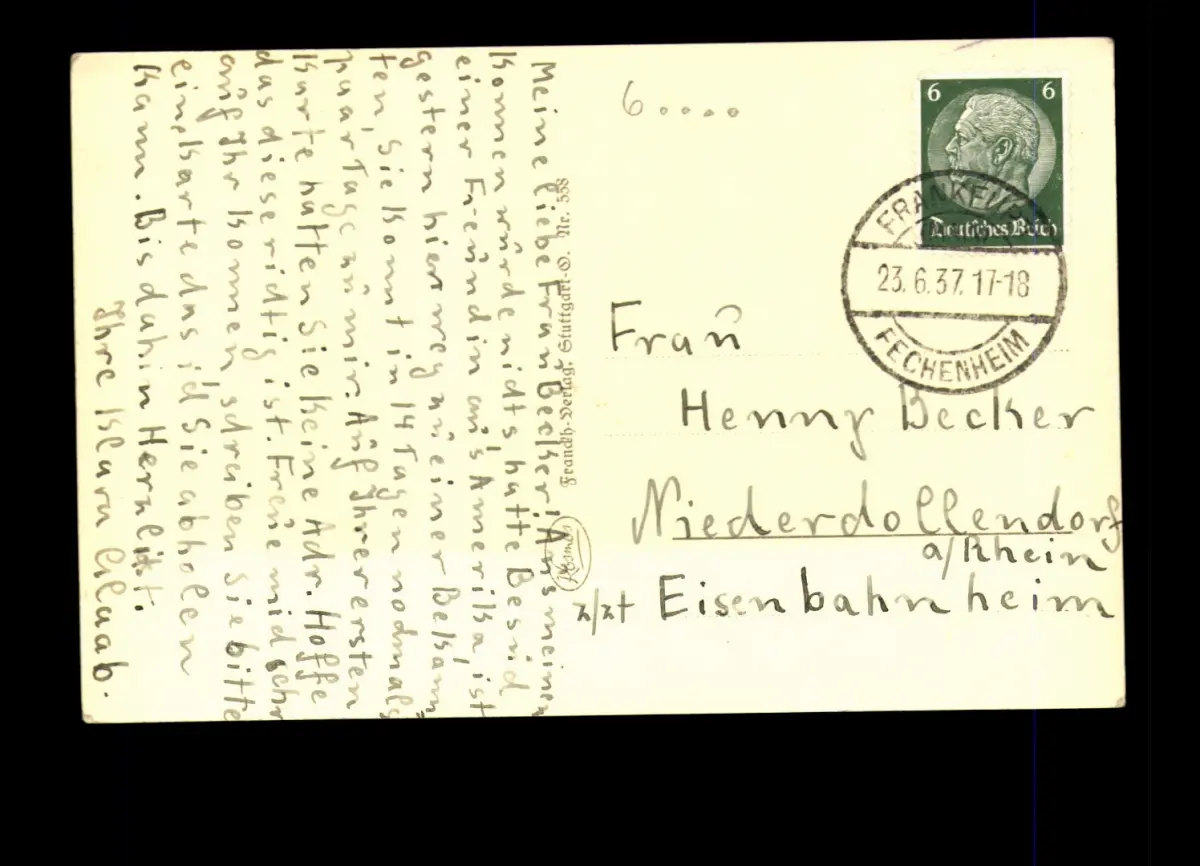 Meine liebe Frau Becker! Aus meinem
Kommen würde nichts, hatte Besuch
einer Freundin aus Amerika, ist
gestern hier weg zu einer Bekann=
ten, Sie kommt in 14 Tagen nochmals
paar Tage zu mir. Auf Ihrer ersten
Karte hatten Sie keine Adr. Hoffe
das diese richtig ist. Freue mich sehr
auf Ihr Kommen, schreiben Sie bitte
eine Karte das ich Sie abholen
kann. Bis dahin Herzlichst.
Ihre Klara Glaab.
Franckh-Verlag, Stuttgart-O. Nr. 558
Kosmos
6....
6 6
Deutsches Reich
FRANKFURT
23.6.37.17-18
FECHENHEIM
Frau
Henny Becker
Niederdollendorf
a/Rhein
z/zt Eisenbahnheim